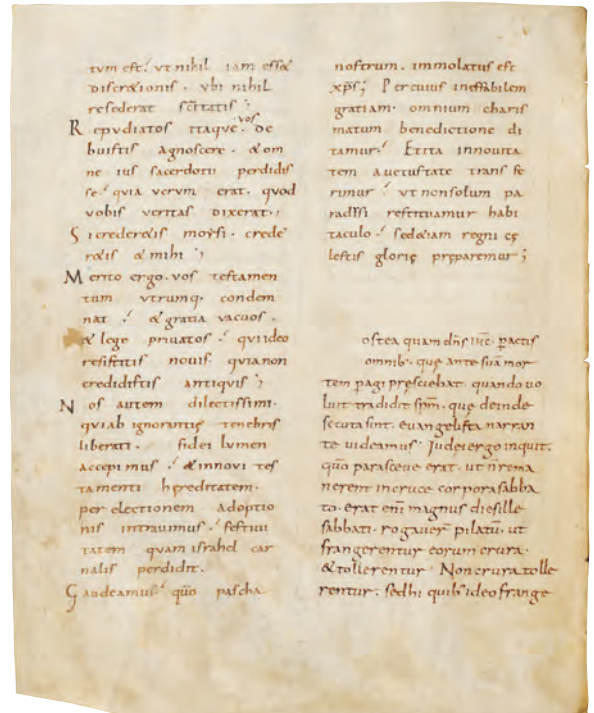 tum est; ut nihil iam esset
discretionis. ubi nihil
resederat sc̄itatis;
Repudiatos itaque vos de
buistis agnoscere. & om
ne ius sacerdotii perdidis
se; quia verum erat. quod
vobis veritas dixerat;
Si crederetis moysi. crede
retis & mihi;
Merito ergo. vos testamen
tum utrumq. condem
nat; & gratia vacuos.
& lege privatos; qui ideo
resistitis novis. quia non
credidistis antiquis;
Nos autem dilectissimi.
quia ab ignorantię tenebris
liberati. fidei lumen
accepimus; & in novi tes
tamenti hereditatem.
per electionem adoptio
nis intravimus; festivi
tatem quam israhel car
nalis perdidit.
Gaudeamus; qūo pascha
nostrum. immolatus est
xp̄s; Per cuius ineffabilem
gratiam. omnium charis
matum benedictione di
tamur; Et ita in novita
tem a vetustate transfe
rimur; ut non solum pa
radisi restituamur habi
taculo; sed etiam regni cę
lestis glorię pręparemur;
ostea quam dn̄s ih̄c. pactis
omnib. quę ante suā mor
tem pagi pręsciebat. quando vo
luit tradidit sp̄m. quę deinde
secuta sint. evangelista narran
te videamus. Judei ergo inquit.
qūo parasceve erat. ut n̄ rema
nerent in cruce corpora sabba
to. erat enī magnus dies ille
sabbati. rogaver̄ pilatū. ut
frangerentur eorum crura.
& tollerentur. Non crura tolle
rentur. sed hi quib; ideo frange